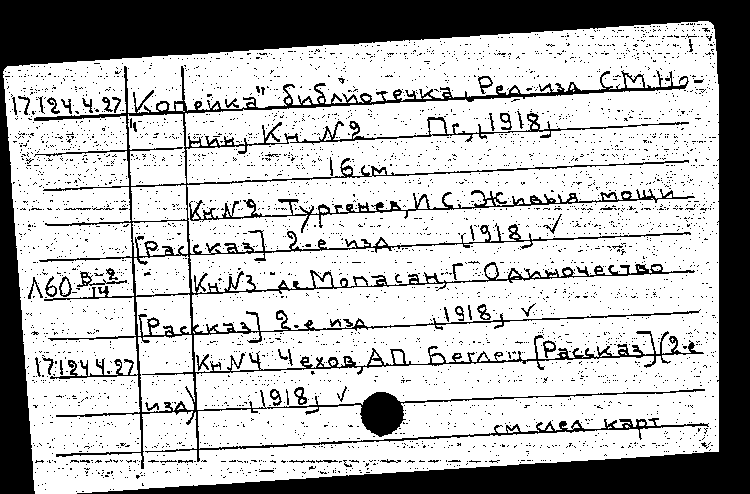 1
17.124.4.27 "Копейка" библиотечка, Ред-изд С.М. Но-
нин, Кн. №2 Пг., [1918]
16 см.
Кн.№2 Тургенев, И.С. Живыя мощи
[Рассказ] 2-е изд. [1918] ✓
Л60 В-2/14 - Кн.№3 де Мопасан, Г Одиночество
[Рассказ] 2-е изд [1918] ✓
17.124.4.27 Кн.№4 Чехов, А.П. Беглец [Рассказ] (2-е
изд) [1918] ✓
см след карт